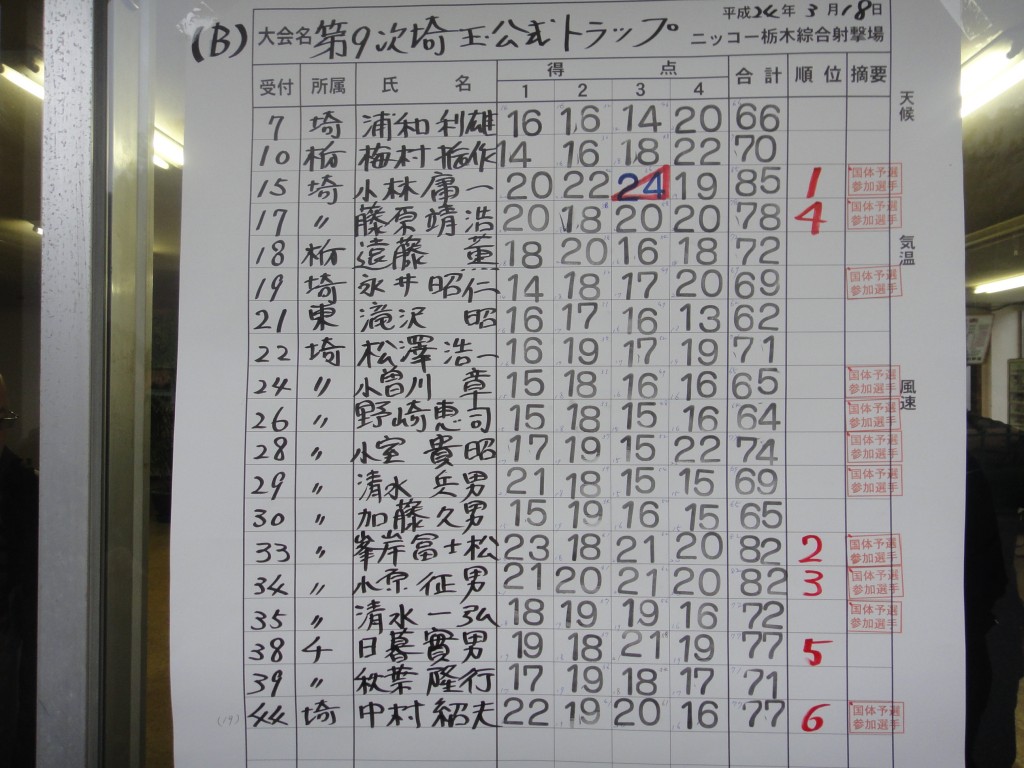 平成24年 3月18日
(B) 大会名 第9次埼玉公式トラップ ニッコー栃木綜合射撃場
受付 所属 氏名 得点 合計 順位 摘要
1 2 3 4
天候
7 埼 浦和利雄 16 16 14 20 66
10 栃 梅村梅作 14 16 18 22 70
15 埼 小林庸一 20 22 24 19 85 1 国体予選参加選手
17 〃 藤原靖浩 20 18 20 20 78 4 国体予選参加選手
気温
18 栃 遠藤薫 18 20 16 18 72
19 埼 永井昭仁 14 18 17 20 69 国体予選参加選手
21 東 滝沢昭 16 17 16 13 62
22 埼 松澤浩一 16 19 17 19 71
風速
24 〃 小曽川章 15 18 16 16 65 国体予選参加選手
26 〃 野崎恵司 15 18 15 16 64 国体予選参加選手
28 〃 小室貴昭 17 19 15 22 74 国体予選参加選手
29 〃 清水兵男 21 18 15 15 69 国体予選参加選手
30 〃 加藤久男 15 19 16 15 65
33 〃 峯岸冨士松 23 18 21 20 82 2 国体予選参加選手
34 〃 小原征男 21 20 21 20 82 3 国体予選参加選手
35 〃 清水一弘 18 19 19 16 72 国体予選参加選手
38 千 日暮實男 19 18 21 19 77 5
39 〃 秋葉隆行 17 19 18 17 71
(19) 44 埼 中村紹夫 22 19 20 16 77 6 国体予選参加選手